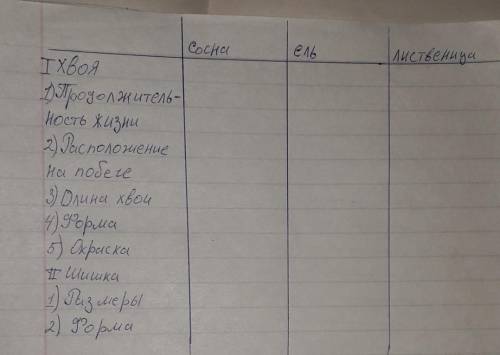 сосна ель лиственица
I хвоя
1) Продолжитель-
ность жизни
2) Расположение
на побеге
3) Длина хвои
4) Форма
5) Окраска
II Шишка
1) Размеры
2) Форма